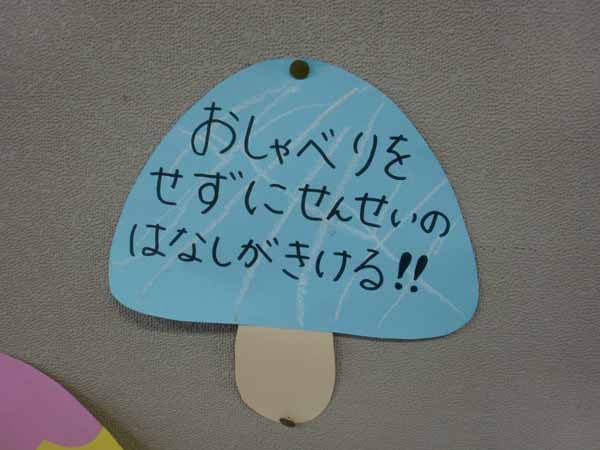 おしゃべりを
せずにせんせいの
はなしがきける!!